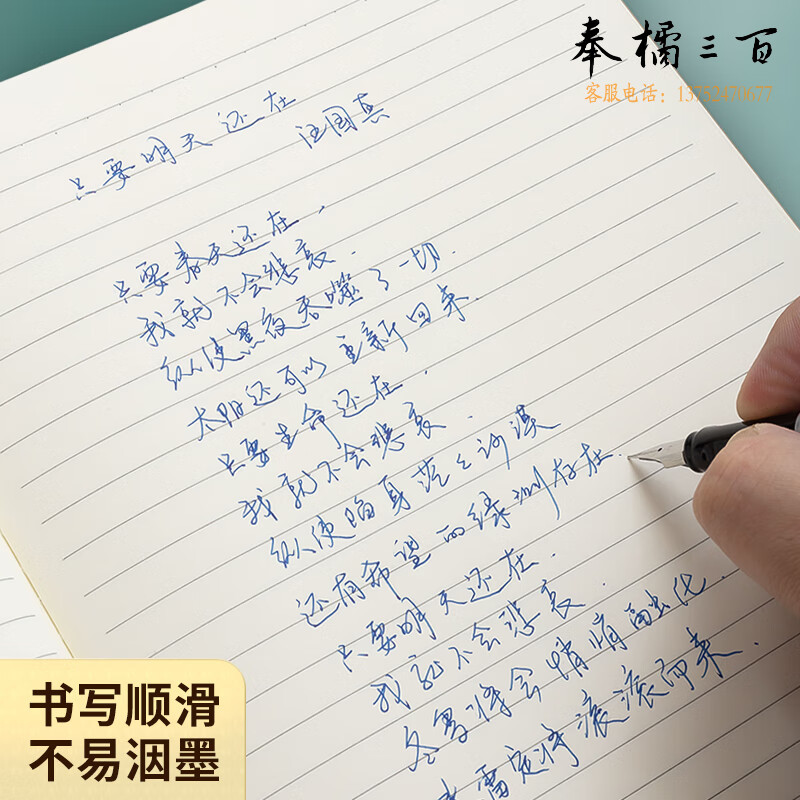 奉橘三百
客服电话：13752470677
只要明天还在
汪国真
只要春天还在，
我就不会悲哀．
纵使黑夜吞噬了一切．
太阳还可以重新回来．
只要生命还在．
我就不会悲哀．
纵使陷身茫茫沙漠
还有希望的绿洲存在．
只要明天还在．
我就不会悲哀．
冬雪将会悄悄融化．
春雷定将滚滚而来．
书写顺滑
不易洇墨